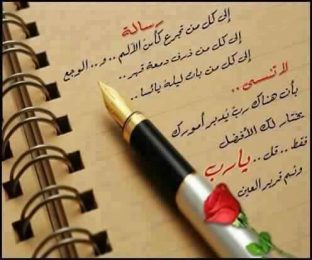 رسالة
إلى كل من تجرع كأس الألم .. و .. الوجع
إلى كل من ذرف دمعة قهر ..
إلى كل من بات ليلة يائسا ..
لا تنسى ..
بأن هناك ربّ يُدبر أمورك
يختار لك الأفضل
فقط .. قل .. يا رب
ونم قرير العين